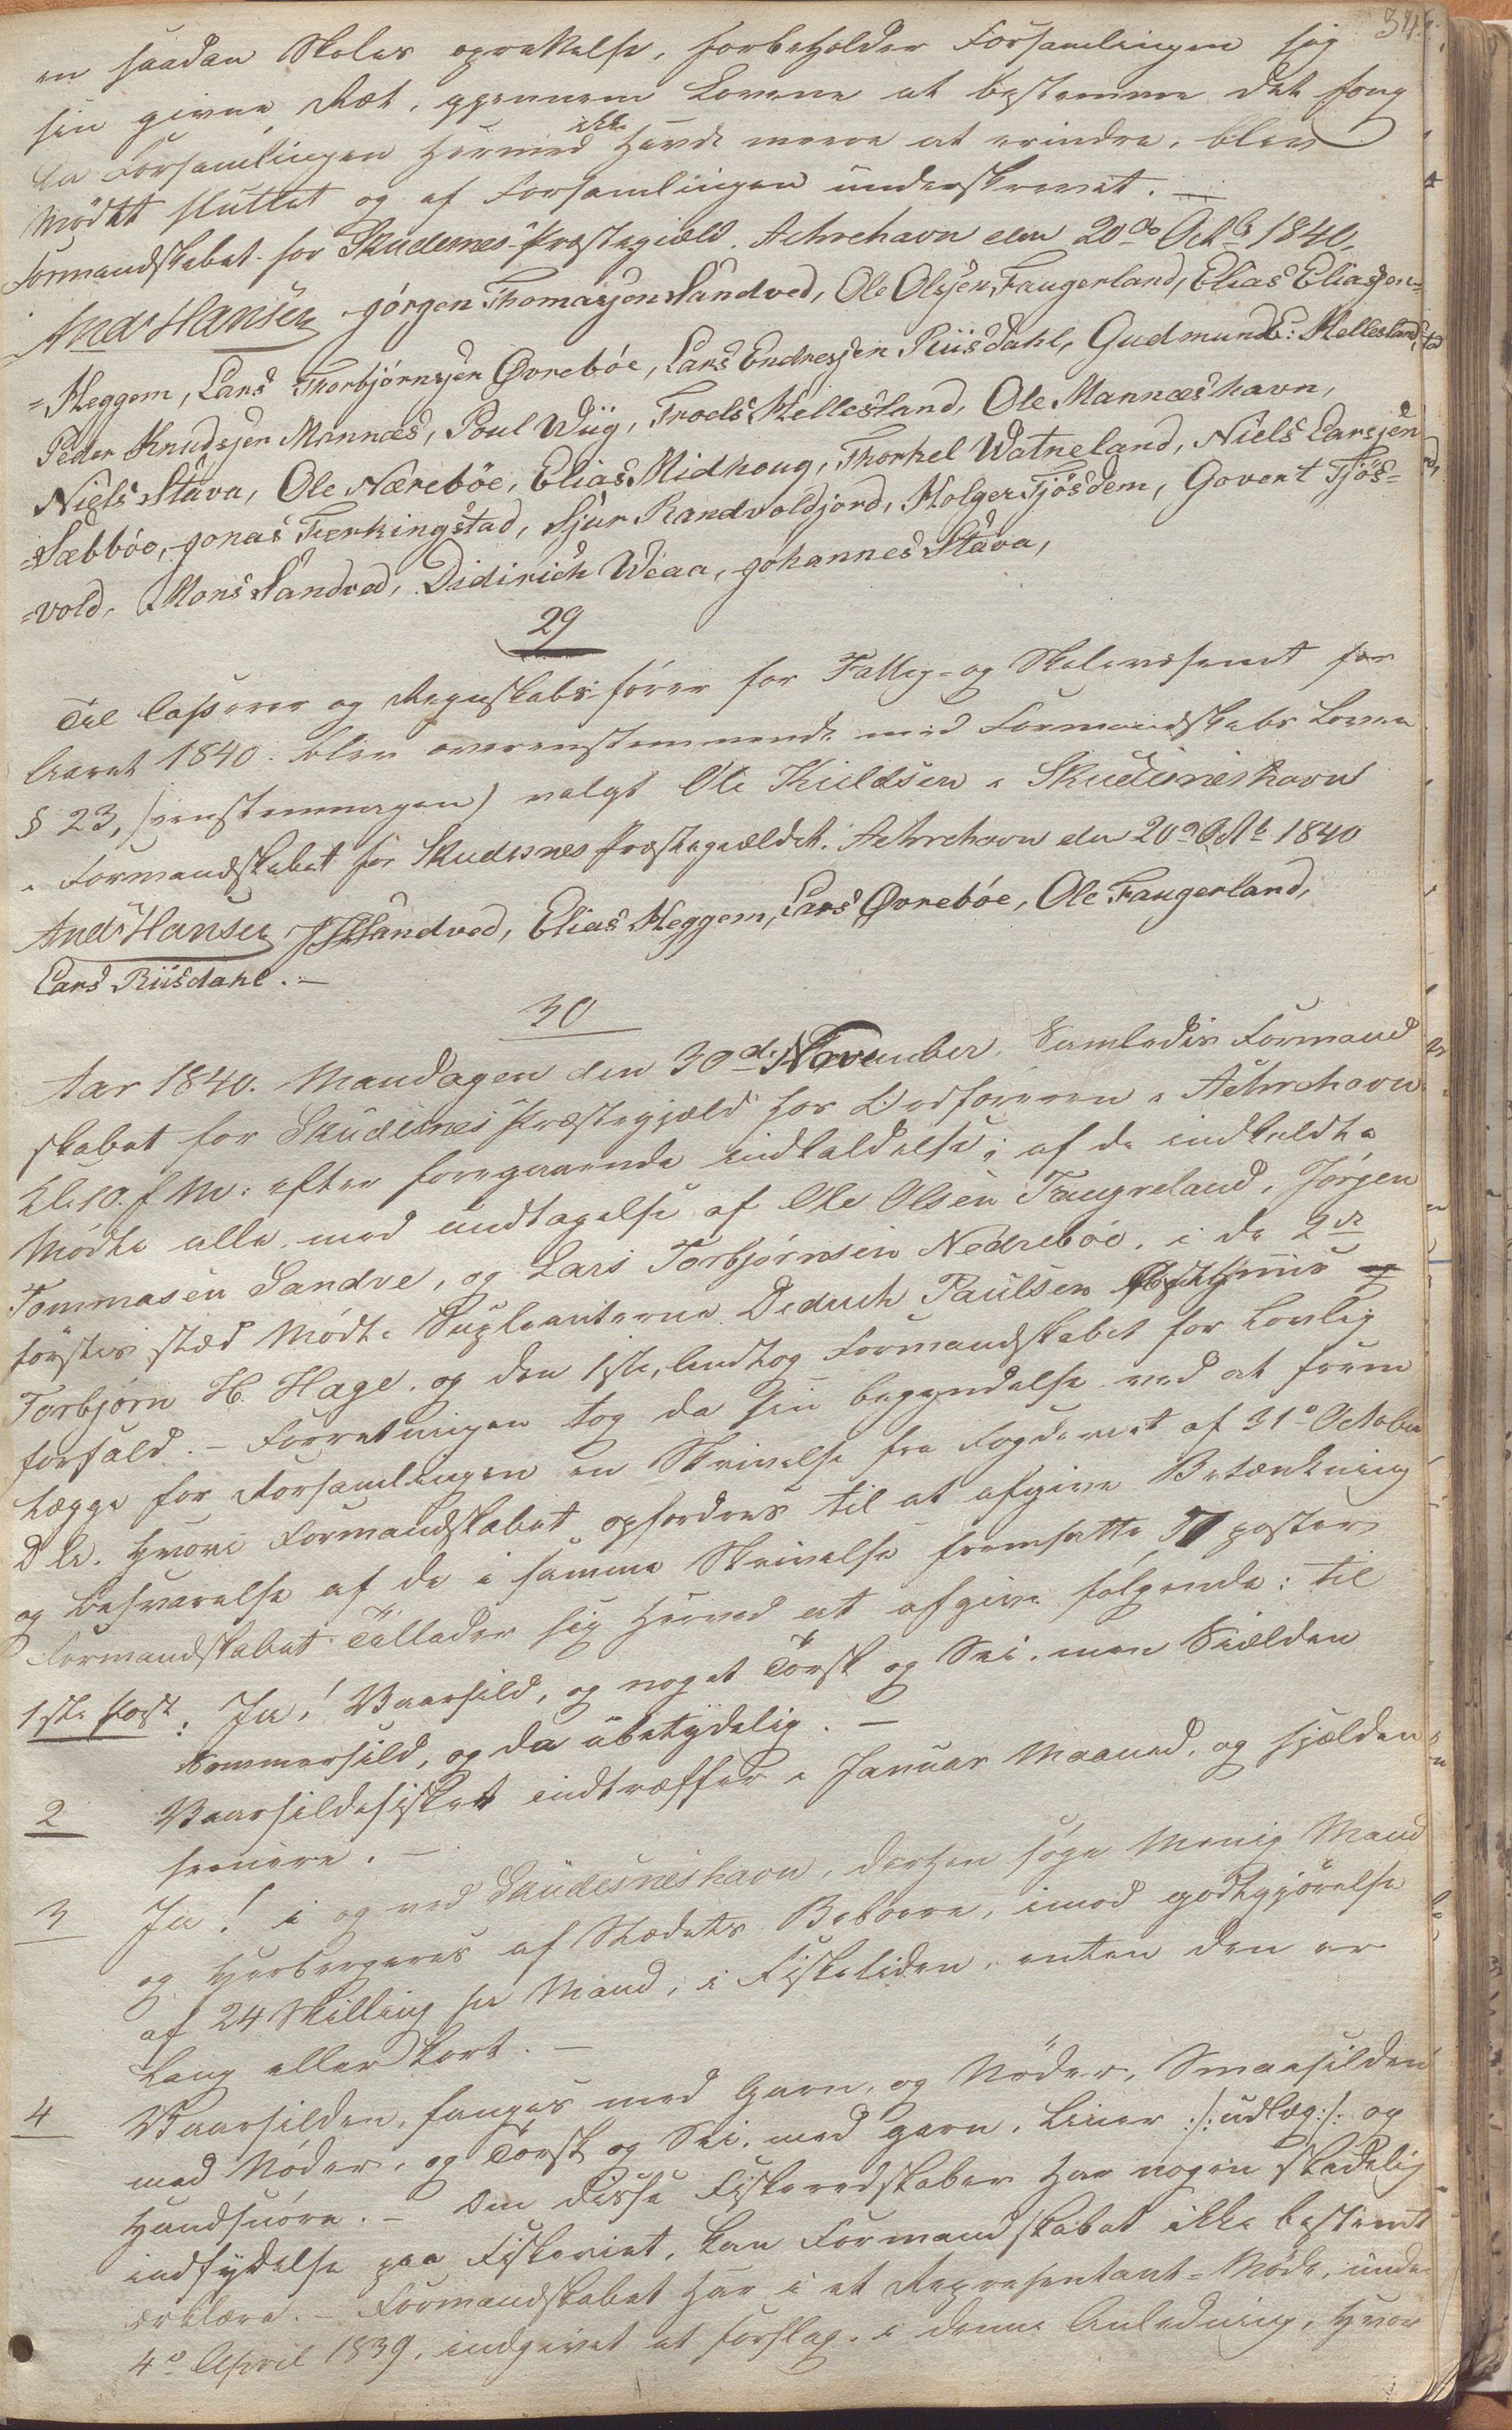 en saadan Skoles oprettelse, forbeholder Forsamlingen sig
sin givne Ret, gjennem Lovene at bestemme det fong
Da Forsamlingen hermed ikke havde mere at erindre, blev
Mödet sluttet og af Forsamlingen underskrevet. —
Formandskabet for Skudesnes Præstegiæld. Achrehavn den 20de Octbr 1840,
Andr Hansen Jörgen Thomasjen Sandved, Ole Olsjen Faugerland, Elias Eliasjen=
=Heggem, Lars Thorbjörnsjen Øvreböe, Lars Endresjen Riisdahl, Gudmund E: Hellesland,
Peder Knudsjen Mannæs, Poul Wiig, Troels Hellesland, Ole Mannæshavn,
Niels Stava, Ole Næreböe, Elias Midhoug, Thorkel Watneland, Niels Larsjen
=Sæbböe, Jonas Ferkingstad, Sjur Sandvoldjord, Holger Tjösdem, Govert Tjös=
=vold, Mons Sandved, Didirich Weaa, Johannes Stava,
29
Til Casserer og Regnskabsförer for Fattig- og Skolevæsenet for
Aaret 1840. blev overensstemmende med Formandskabs Loven
§ 23, (eenstemmigen) valgt Ole Kieldsen i Skudesneshavn
i Formandskabet for Skudesnes Præstegieldet. Aehrehavn den 20de Octbr 1840
Andr Hansen JTSandved, Elias Heggem, Lars Øvreböe, Ole Faugerland,
Lars Riisdahl. —
30
Aar 1840. Mandagen den 30de November, Samledes Formand
skabet for Skudesnes Præstegjæld hos Ordföreren i Aehrehavn
Kl. 10. f M: efter foregaaende indkaldelse; af de indkaldte
Mödte alle med undtagelse af Ole Olsen Faugreland, Jörgen
Tommasen Sandve, og Lars Torbjörnsen Nedreböe, i de 2de
förstes sted Mödte Supleanterne Dedrich Paulsen og
Torbjörn H. Hage, og den 1ste, Formandskabet for Lovlig
forfald. — Forretningen tog da sin begyndelse ved at frem
lægge for Forsamlingen en Skrivelse fra Fogderiet af 31e October
d A. hvori Formandskabet opfordres til at afgive Betænkning
og besvarelse af de i samme Skrivelse fremsatte 7 poster
Formandskabet Tillader sig herved at afgive fölgende: til
1ste Post: Ja! Vaarsild, og noget Torsk og Sei. men Siælden
Sommersild, og da ubetydelig. —
2 Vaarsildefisket indtræffer i Januar Maaned, og sjælden
senere. —
3 Ja! i og ved Skudesneshavn, derhen söge Menig Mand
og Herbergeres af Stedets Beboere, imod godtgjörelse
af 24 Skilling pr Mand, i Fisketiden, enten den er
Lang eller kort. —
4 Vaarsilden, fanges med Garn, og Nöder, Smaasilden
med Nöder, og Torsk og Sei, med garn, Liner :/: udlæg :/: og
Handsnöre. — Om disse Fiskeredskaber har nogen skadelig
indflydelse paa Fiskeriet, kan Formandskabet ikke bestemt
erklære. — Formandskabet har i et Representant-Möde, under
4e April 1839, indgivet et forslag, i denne Anledning, hvor